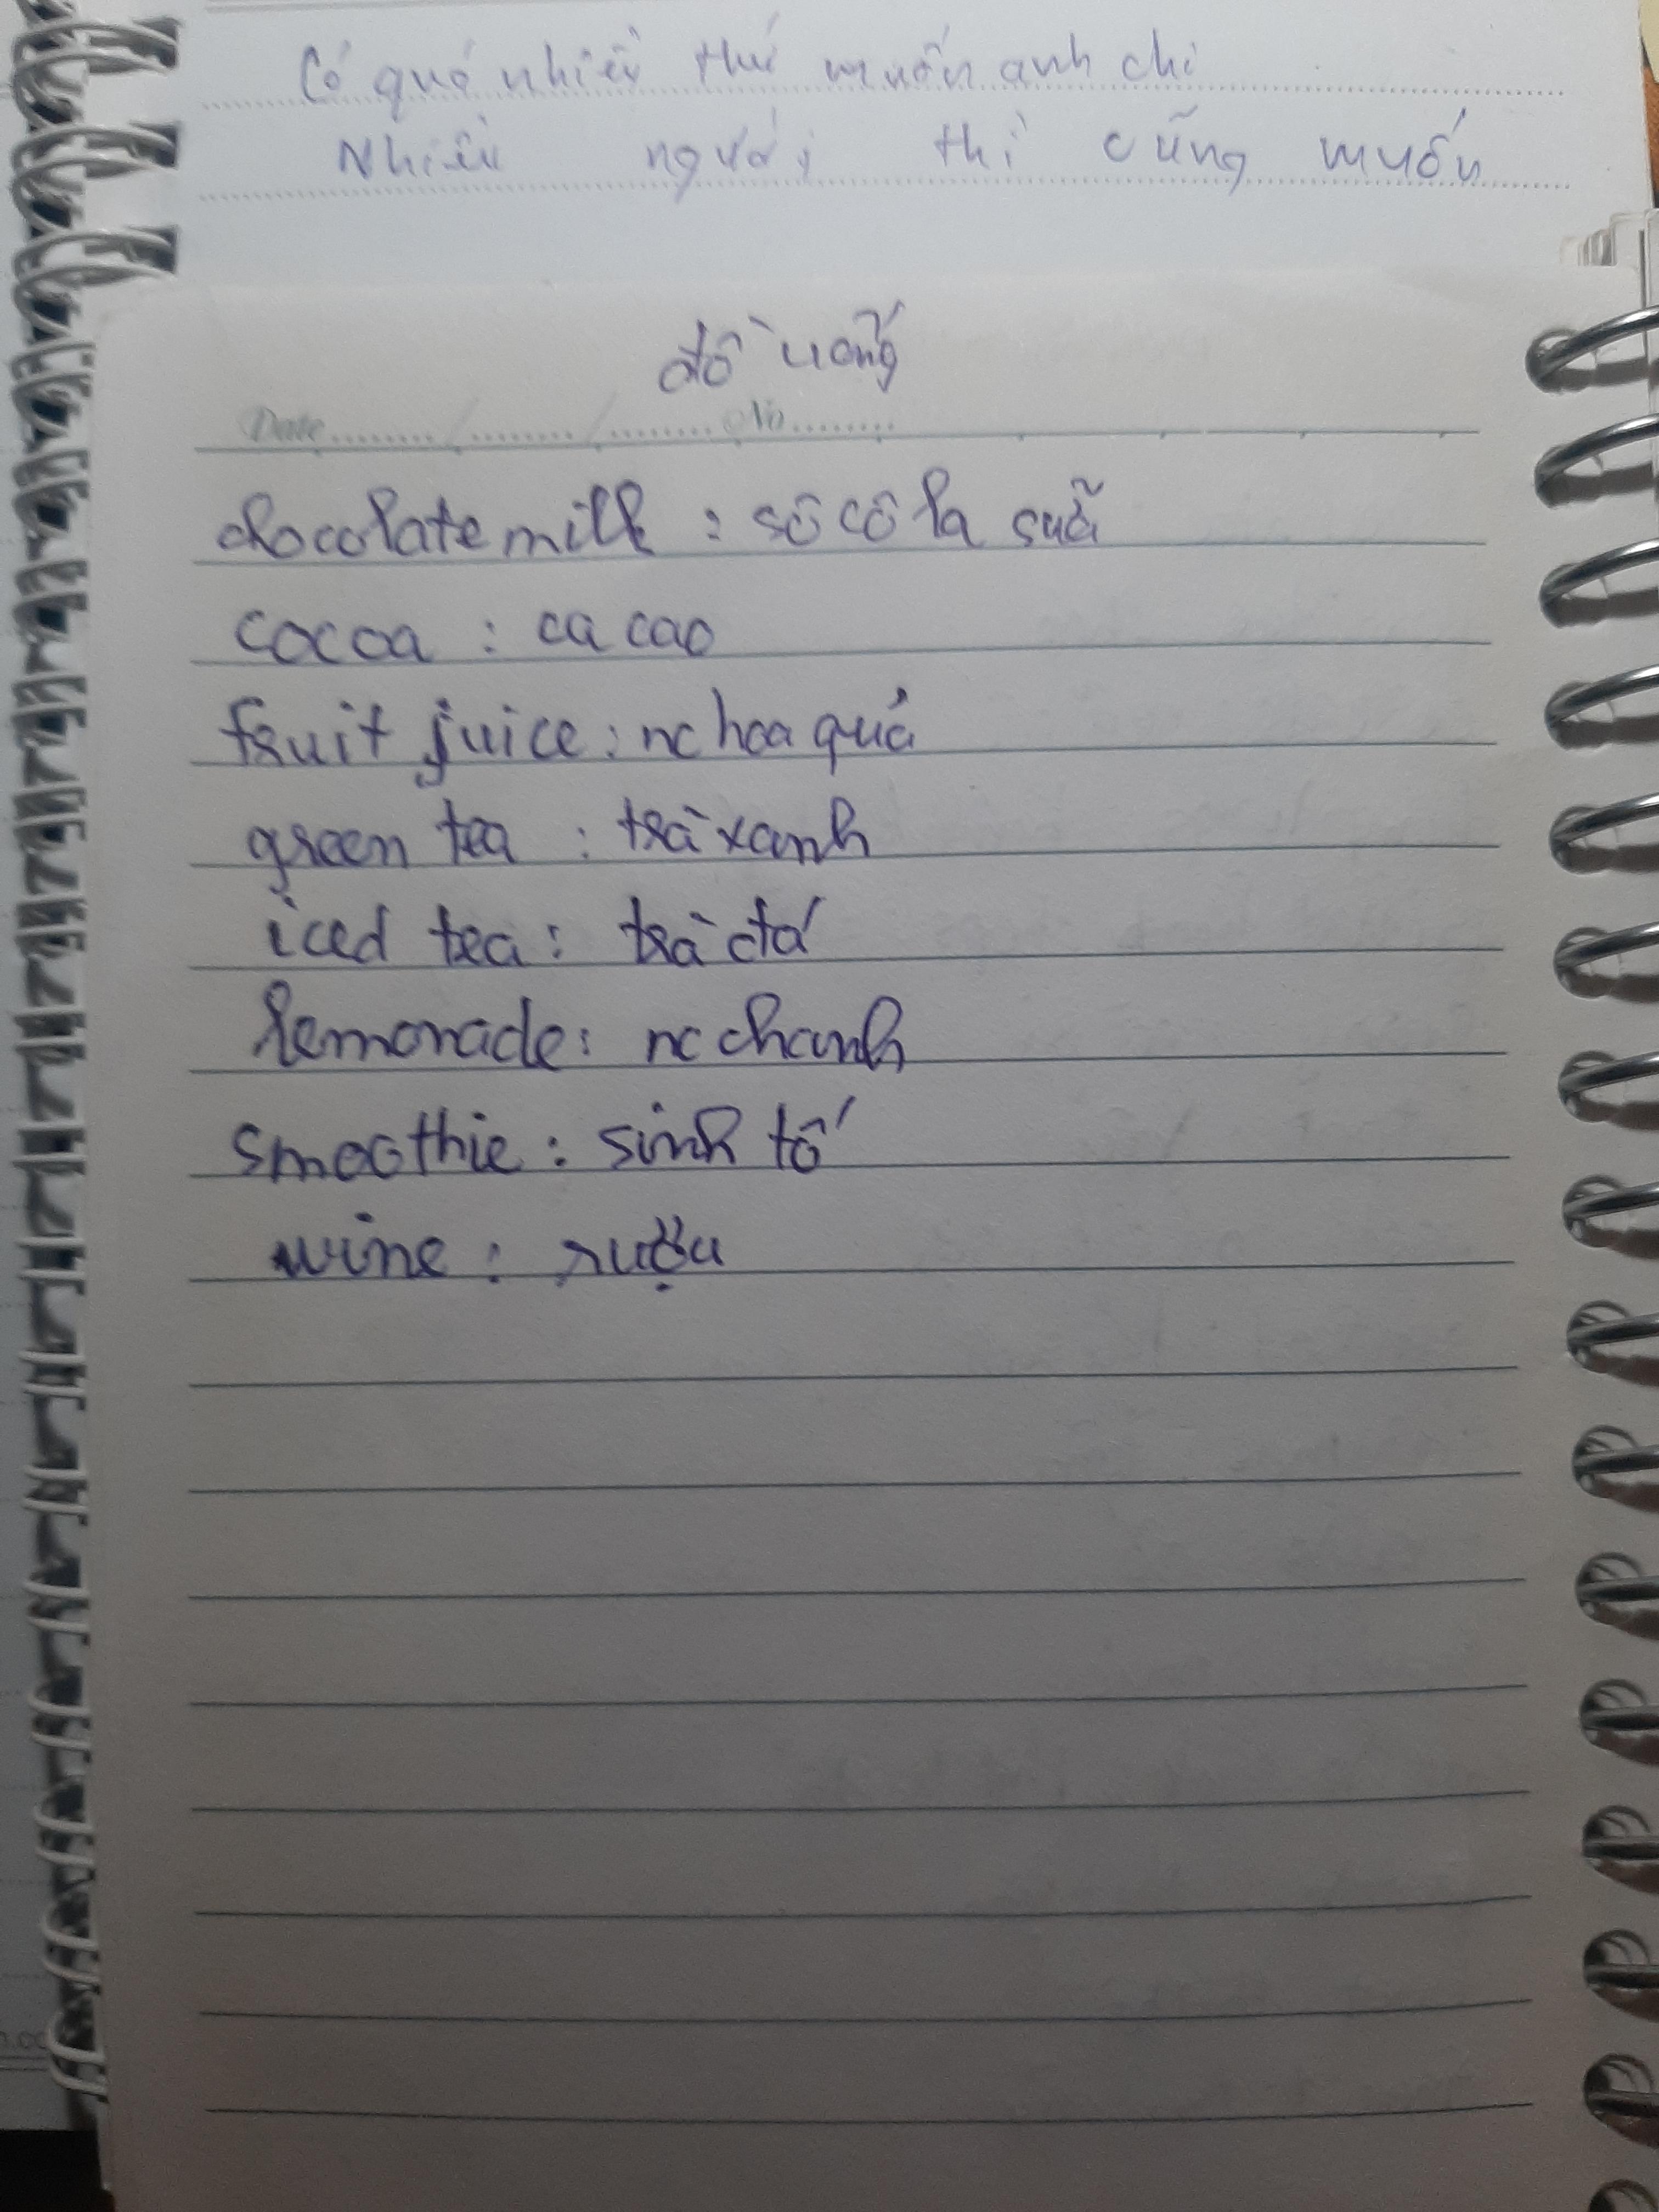 Có quá nhiều thứ muốn anh chi
Nhiều người thì cũng muốn
đồ uống
Date ......../......../........ No ........
chocolate milk : sô cô la sữa
cocoa : ca cao
fruit juice : nc hoa quả
green tea : trà xanh
iced tea : trà đá
lemonade : nc chanh
smoothie : sinh tố
wine : rượu